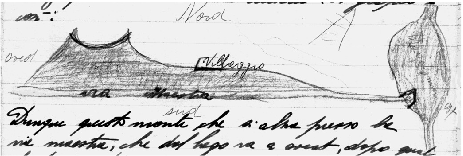 Nord
ovest
Villaggio
via maestra
sud
Dunque questo monte che si alza presso la
via maestra, che dal lago va a ovest, dopo